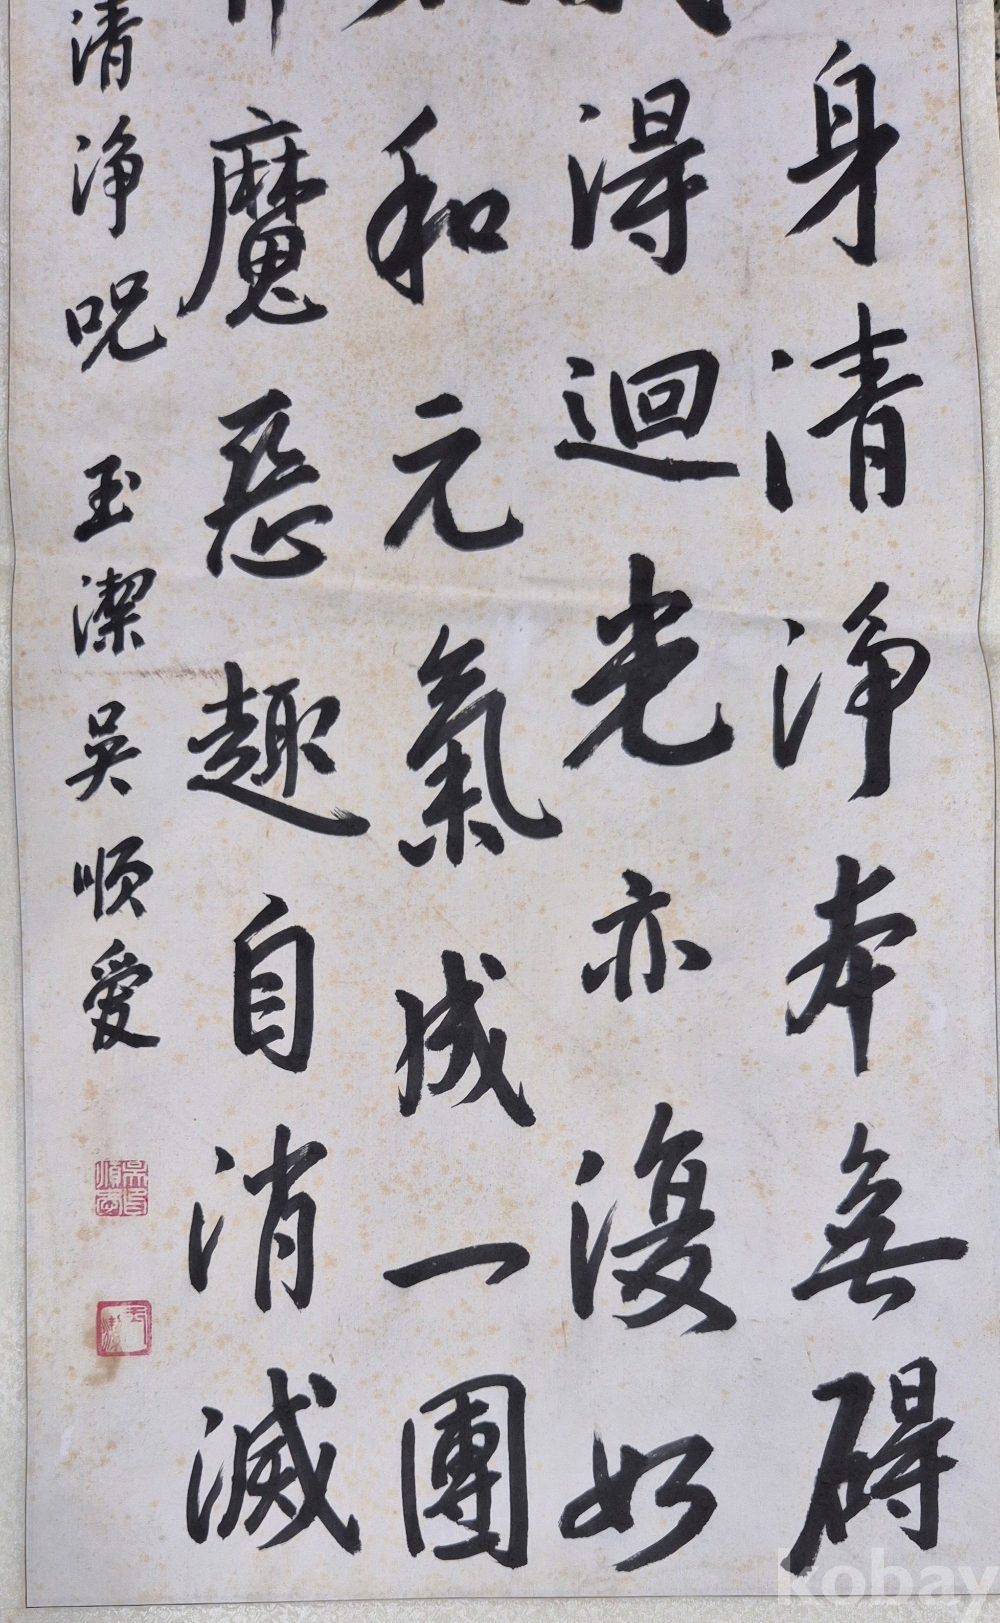 身清淨本無碍
得迴光亦復如
和元氣成一團
魔惡趣自消滅
清净呪 玉潔吳順愛
kobay